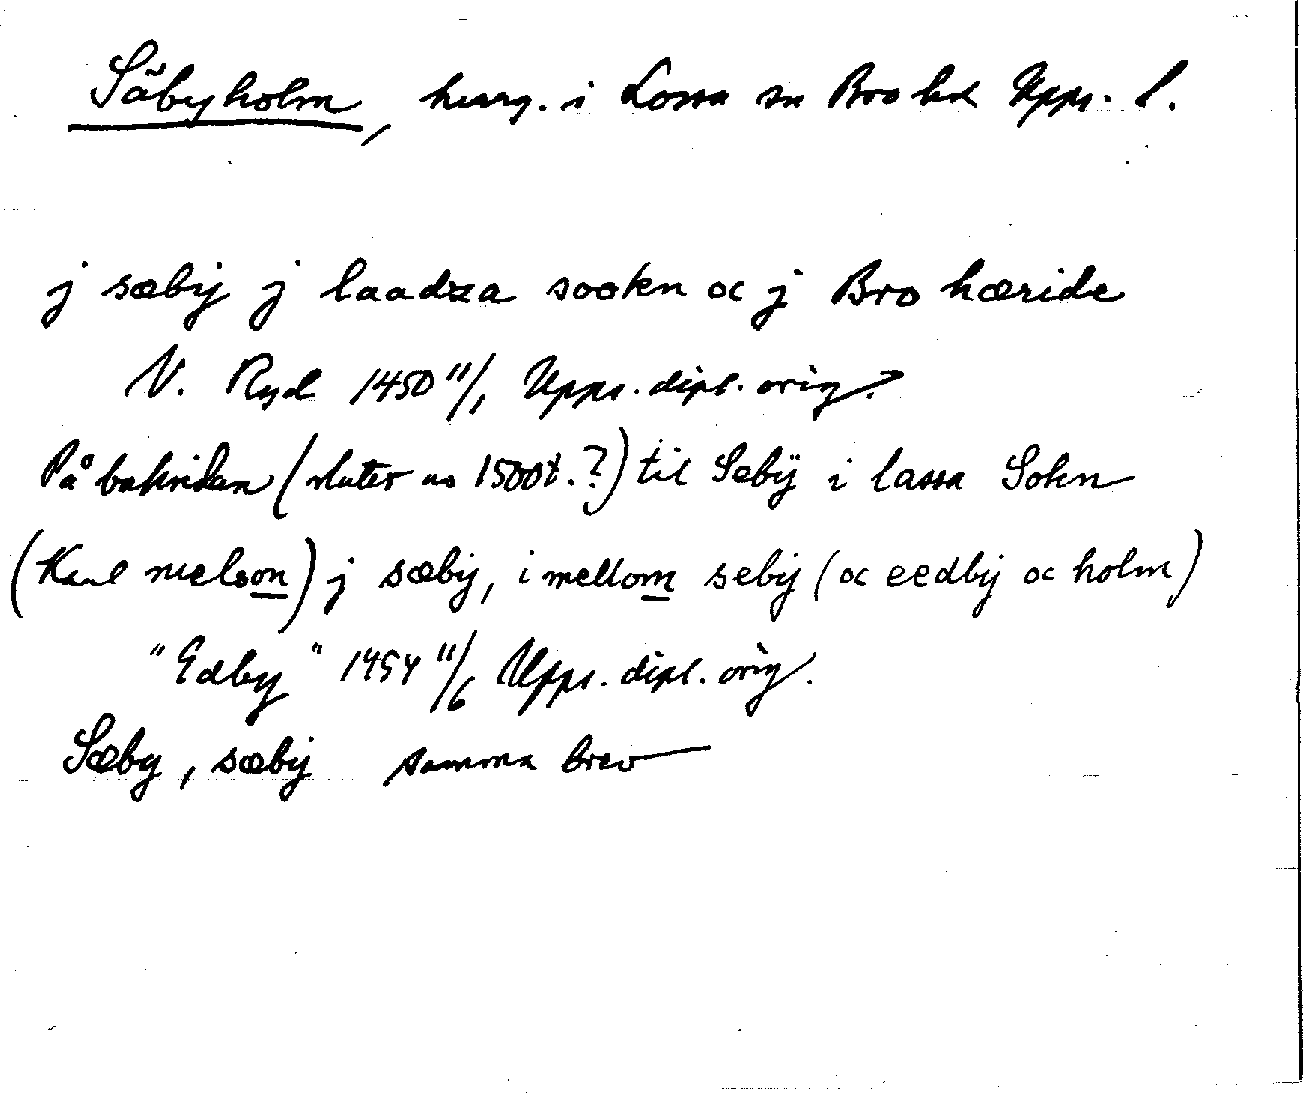 Säbyholm, herrg. i Lossa sn Bro hd Upps. l.
j sæbij j laadza sookn oc j Bro hæride
V. Ryd 1450 11/1 Upps. dipl. orig.
På baksidan (slutet av 1500t.?) til Sebÿ i lassa Sokn
(Karl nielson) j sæbij, i mellom sebij (oc eedbij oc holm)
"Edby" 1454 11/6 Upps. dipl. orig.
Sæby, sæbij samma brev